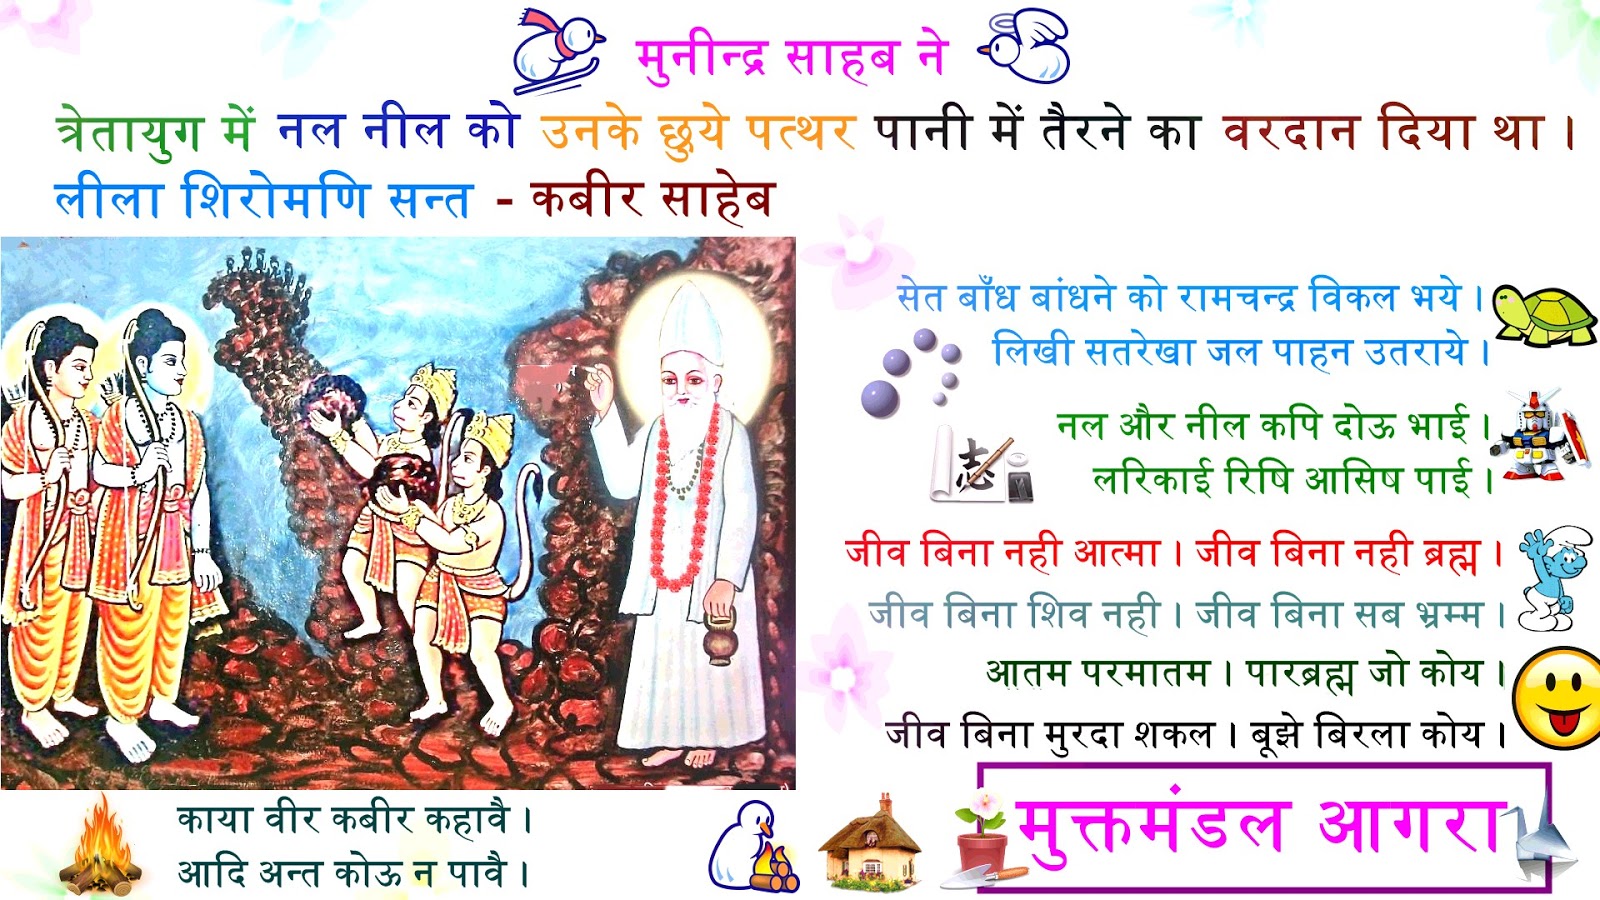 मुनीन्द्र साहब ने
त्रेतायुग में नल नील को उनके छुये पत्थर पानी में तैरने का वरदान दिया था ।
लीला शिरोमणि सन्त - कबीर साहेब
सेत बाँध बांधने को रामचन्द्र विकल भये ।
लिखी सतरेखा जल पाहन उतराये ।
志
नल और नील कपि दोऊ भाई ।
लरिकाई रिषि आसिष पाई ।
जीव बिना नही आत्मा । जीव बिना नही ब्रह्म ।
जीव बिना शिव नही । जीव बिना सब भ्रम्म ।
आतम परमातम । पारब्रह्म जो कोय ।
जीव बिना मुरदा शकल । बूझे बिरला कोय ।
काया वीर कबीर कहावै ।
आदि अन्त कोऊ न पावै ।
मुक्तमंडल आगरा